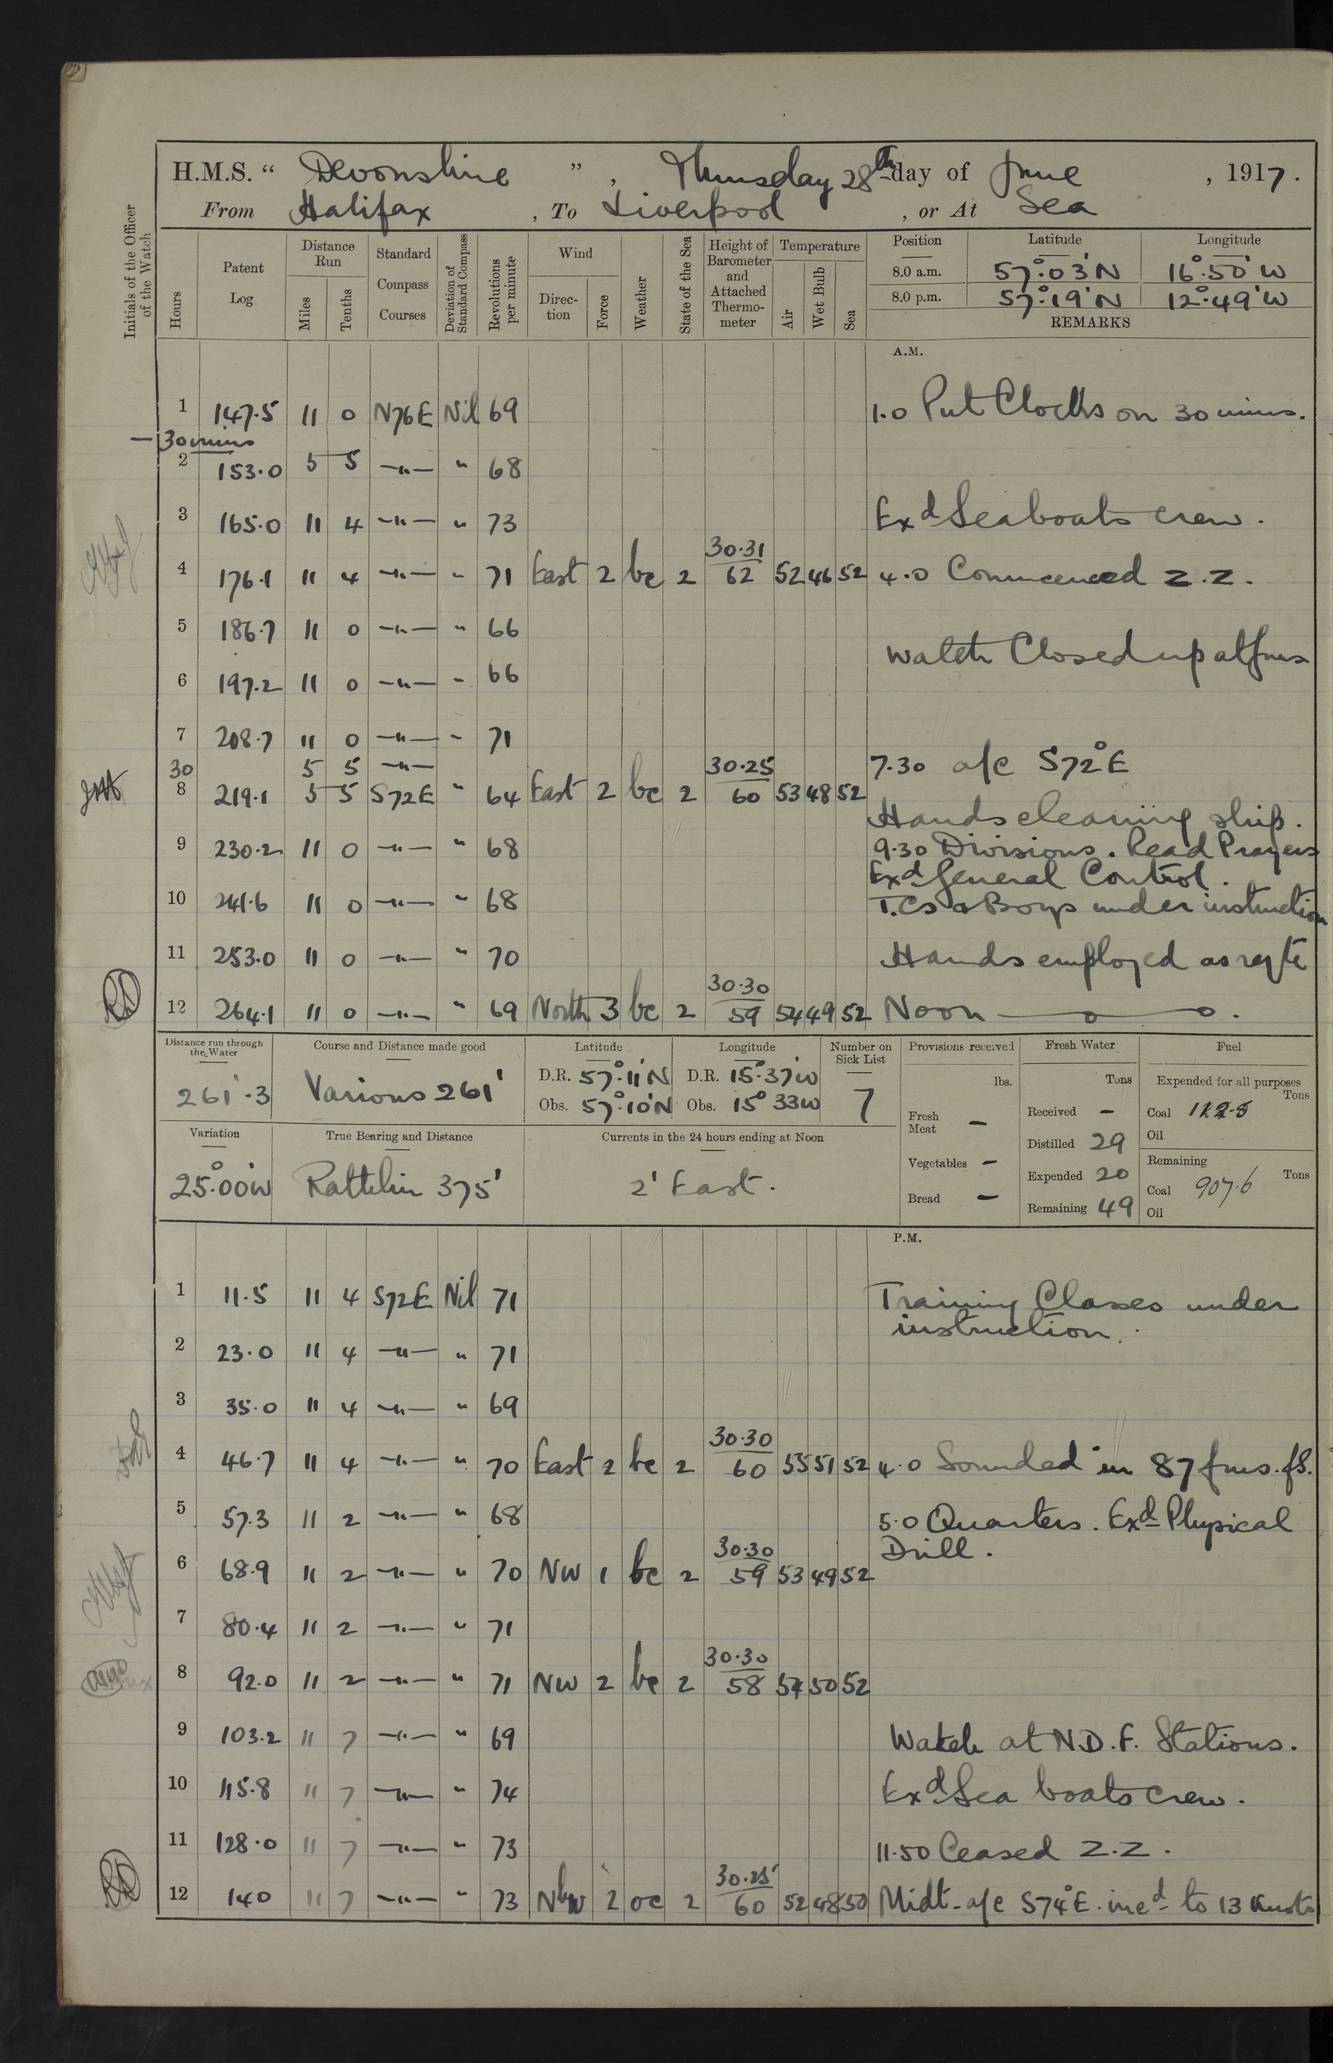 H.M.S. “ Devonshire ” , Thursday 28th day of June , 1917.
From Halifax , To Liverpool , or At Sea
Initials of the Officer of the Watch
Hours
Patent Log
Distance Run
Miles
Tenths
Standard Compass Courses
Deviation of Standard Compass
Revolutions per minute
Wind
Direction
Force
Weather
State of the Sea
Height of Barometer and Attached Thermometer
Temperature
Air
Wet Bulb
Sea
Position Latitude Longitude
8.0 a.m. 57°.03'N 16°.50'W
8.0 p.m. 57°.19'N 12°.49'W
REMARKS
A.M.
1 147.5 11 0 N76E Nil 69 1.0 Put Clocks on 30 mins.
—30 mins
2 153.0 5 5 —"— " 68
3 165.0 11 4 —"— " 73 Exd Seaboats crew.
4 176.1 11 4 —"— " 71 East 2 bc 2 30.31 62 52 46 52 4.0 Commenced Z.Z.
5 186.7 11 0 —"— " 66
Watch Closed up at
6 197.2 11 0 —"— " 66
7 208.7 11 0 —"— " 71
30 5 5 —"— 7.30 a/c S72°E
8 219.1 5 5 S72E " 64 East 2 bc 2 30.25 60 53 48 52
Hands cleaning ship.
9 230.2 11 0 —"— " 68 9.30 Divisions. Read Prayers
Exd General Control.
10 241.6 11 0 —"— " 68 T.Cs & Boys under instruction
11 253.0 11 0 —"— " 70 Hands employed as reqte
12 264.1 11 0 —"— " 69 North 3 bc 2 30.30 59 54 49 52 Noon
Distance run through the Water
261'.3
Course and Distance made good
Various 261'
Latitude
D.R. 57°.11'N
Obs. 57°.10'N
Longitude
D.R. 15°.37'W
Obs. 15° 33W
Number on Sick List
7
Provisions received
lbs.
Fresh Meat —
Vegetables —
Bread —
Fresh Water
Tons
Received —
Distilled 29
Expended 20
Remaining 49
Fuel
Expended for all purposes
Tons
Coal 112.5
Oil
Remaining
Tons
Coal 907.6
Oil
Variation
25°.00'W
True Bearing and Distance
Rathlin 375'
Currents in the 24 hours ending at Noon
2' East.
P.M.
1 11.5 11 4 S72E Nil 71 Training Classes under
instruction.
2 23.0 11 4 —"— " 71
3 35.0 11 4 —"— " 69
4 46.7 11 4 —"— " 70 East 2 bc 2 30.30 60 55 51 52 4.0 Sounded in 87 fms. fS.
5 57.3 11 2 —"— " 68 5.0 Quarters. Exd Physical
Drill.
6 68.9 11 2 —"— " 70 NW 1 bc 2 30.30 59 53 49 52
7 80.4 11 2 —"— " 71
8 92.0 11 2 —"— " 71 NW 2 bc 2 30.30 58 54 50 52
9 103.2 11 7 —"— " 69 Watch at N.D.F. Stations.
10 115.8 11 7 —"— " 74 Exd Sea boats crew.
11 128.0 11 7 —"— " 73 11.50 Ceased Z.Z.
12 140 11 7 —"— " 73 NbW 2 oc 2 30.25 60 52 48 50 Midt. a/c S74°E. incd to 13 Knots